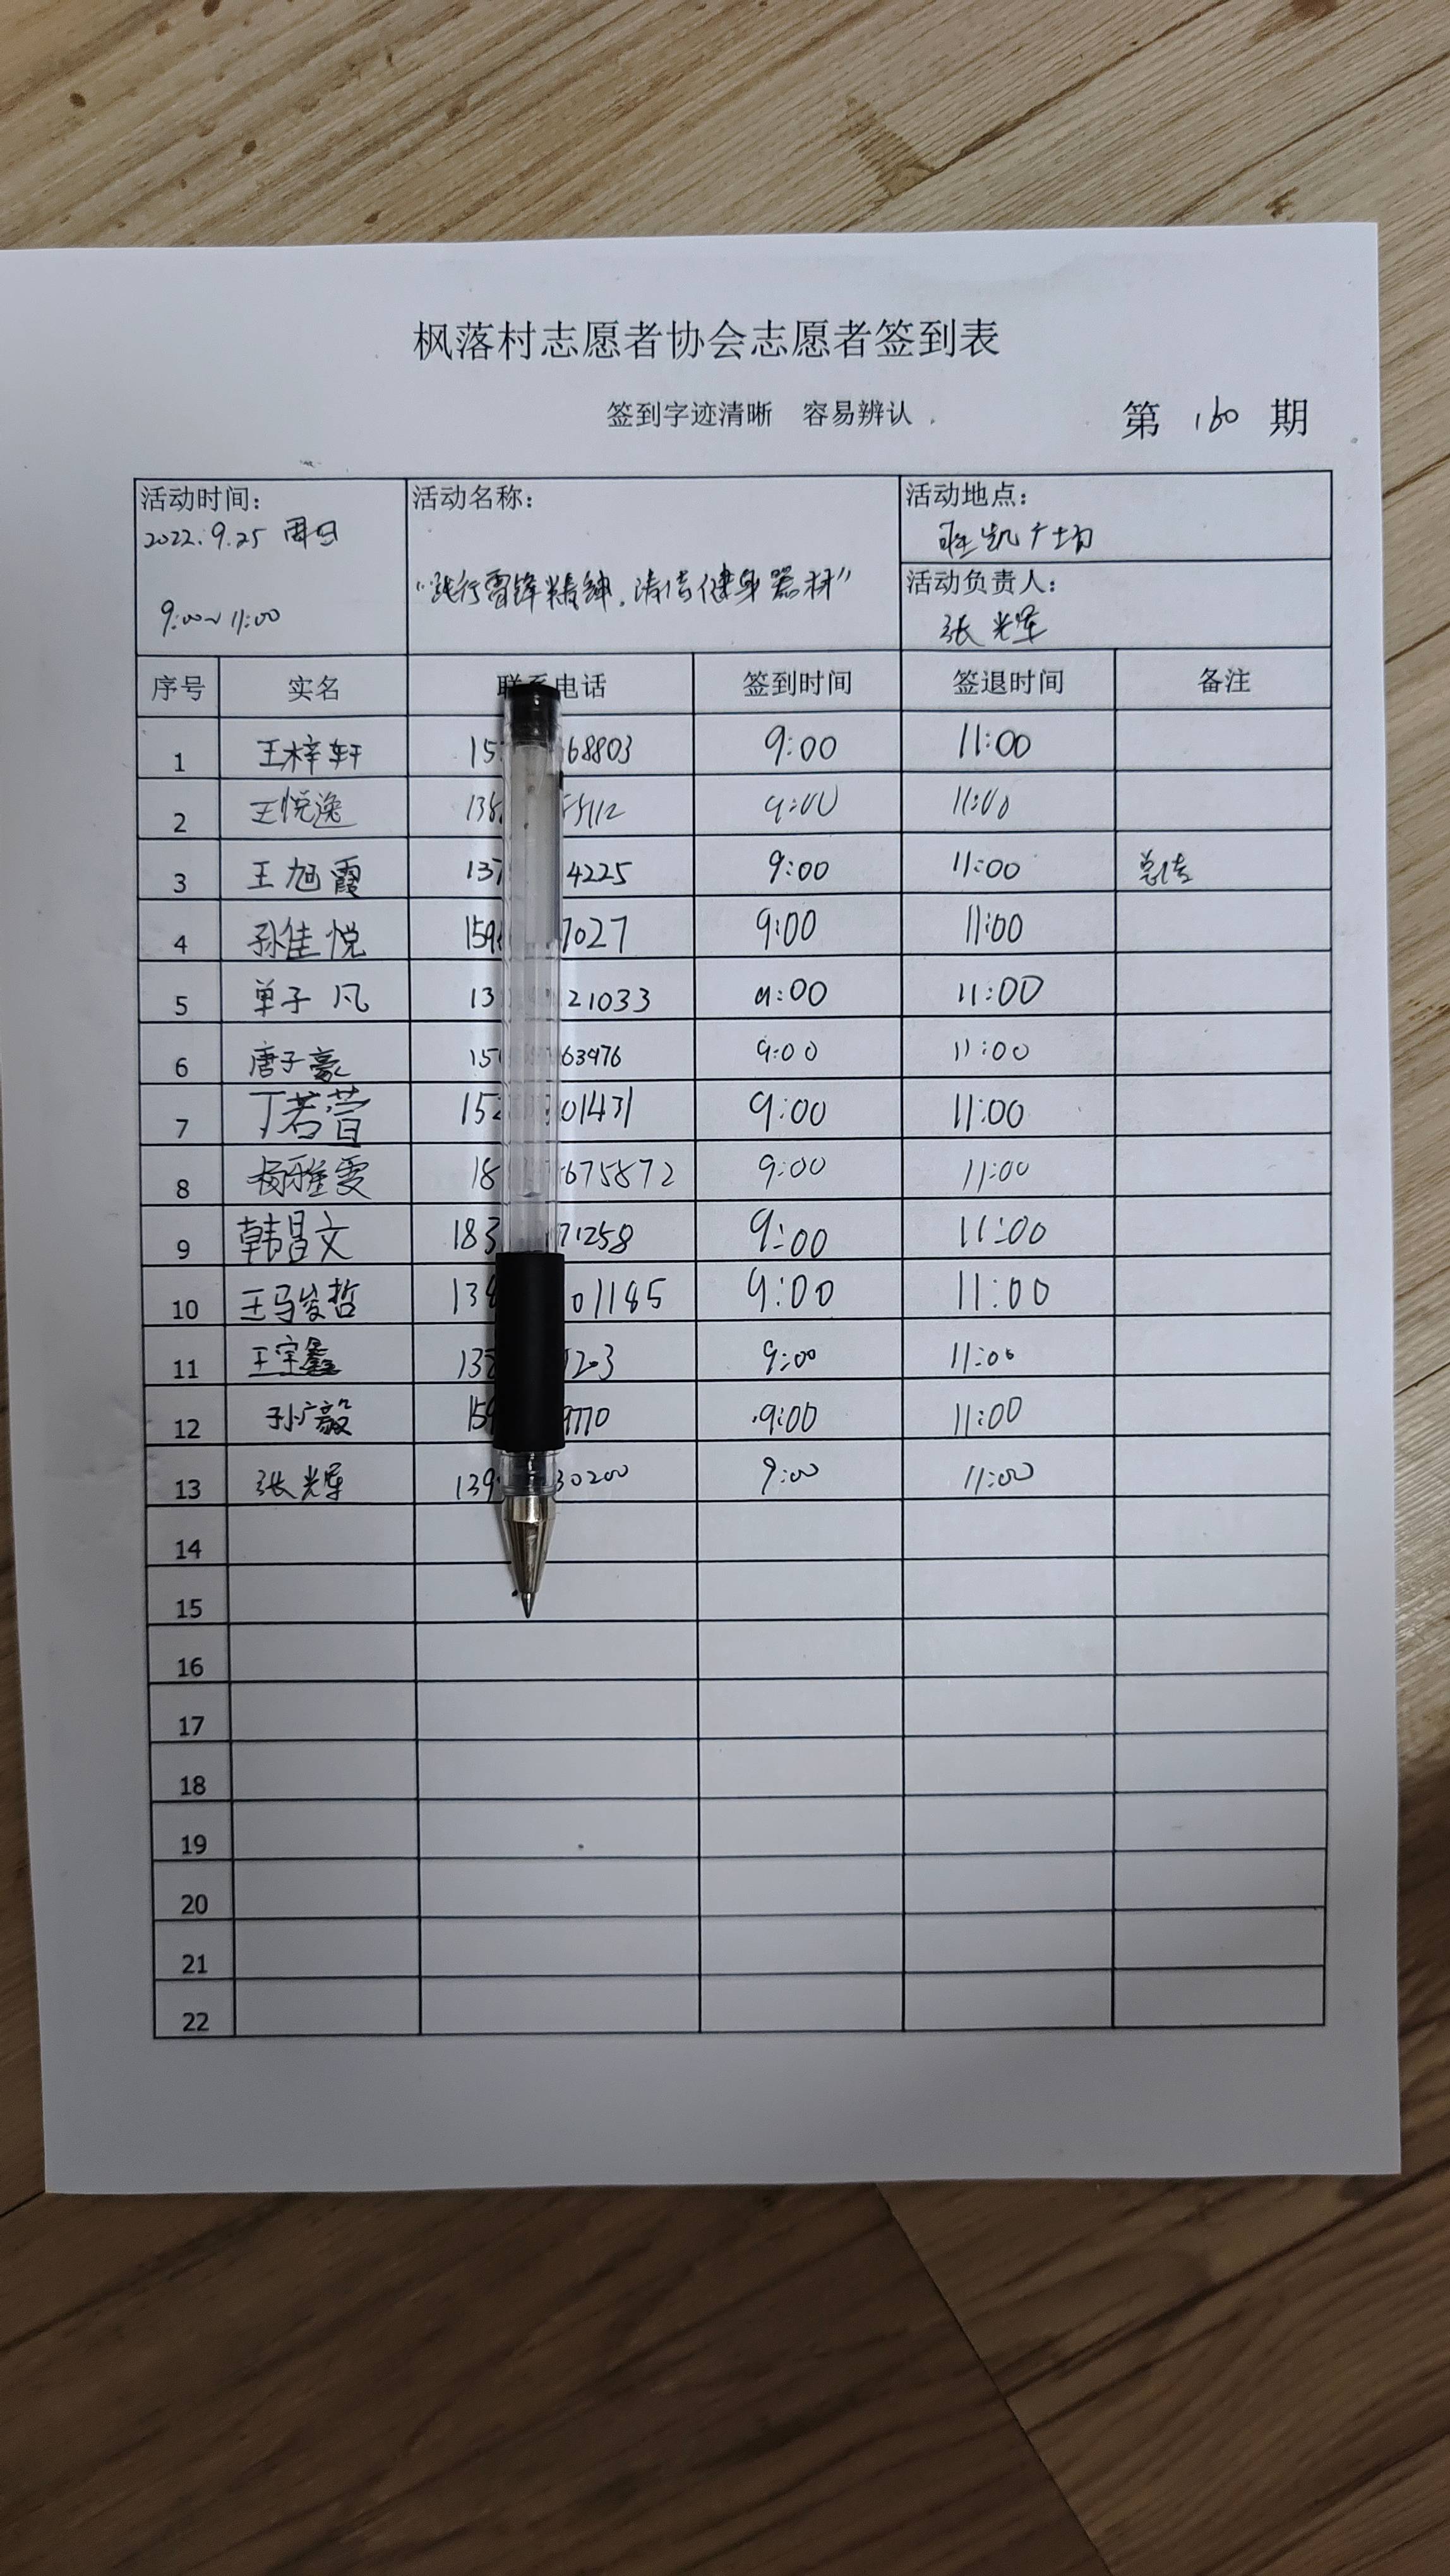 枫落村志愿者协会志愿者签到表
签到字迹清晰 容易辨认
第 160 期
活动时间： 活动名称： 活动地点：
2022.9.25 周日 广场
"践行雷锋精神，清洁健身器材" 活动负责人：
9:00~11:00 张光辉
序号 实名 联系电话 签到时间 签退时间 备注
1 王梓轩 15 68803 9:00 11:00
2 王悦逸 138 5112 9:00 11:00
3 王旭霞 137 4225 9:00 11:00
4 孙佳悦 159 7027 9:00 11:00
5 单子凡 13 21033 9:00 11:00
6 唐子豪 15 63976 9:00 11:00
7 丁若萱 152 01431 9:00 11:00
8 杨雅雯 18 675872 9:00 11:00
9 韩昌文 183 71258 9:00 11:00
10 王马俊哲 138 01185 9:00 11:00
11 王宇鑫 138 1203 9:00 11:00
12 孙广毅 159 9770 9:00 11:00
13 张光辉 139 30200 9:00 11:00
14
15
16
17
18
19
20
21
22